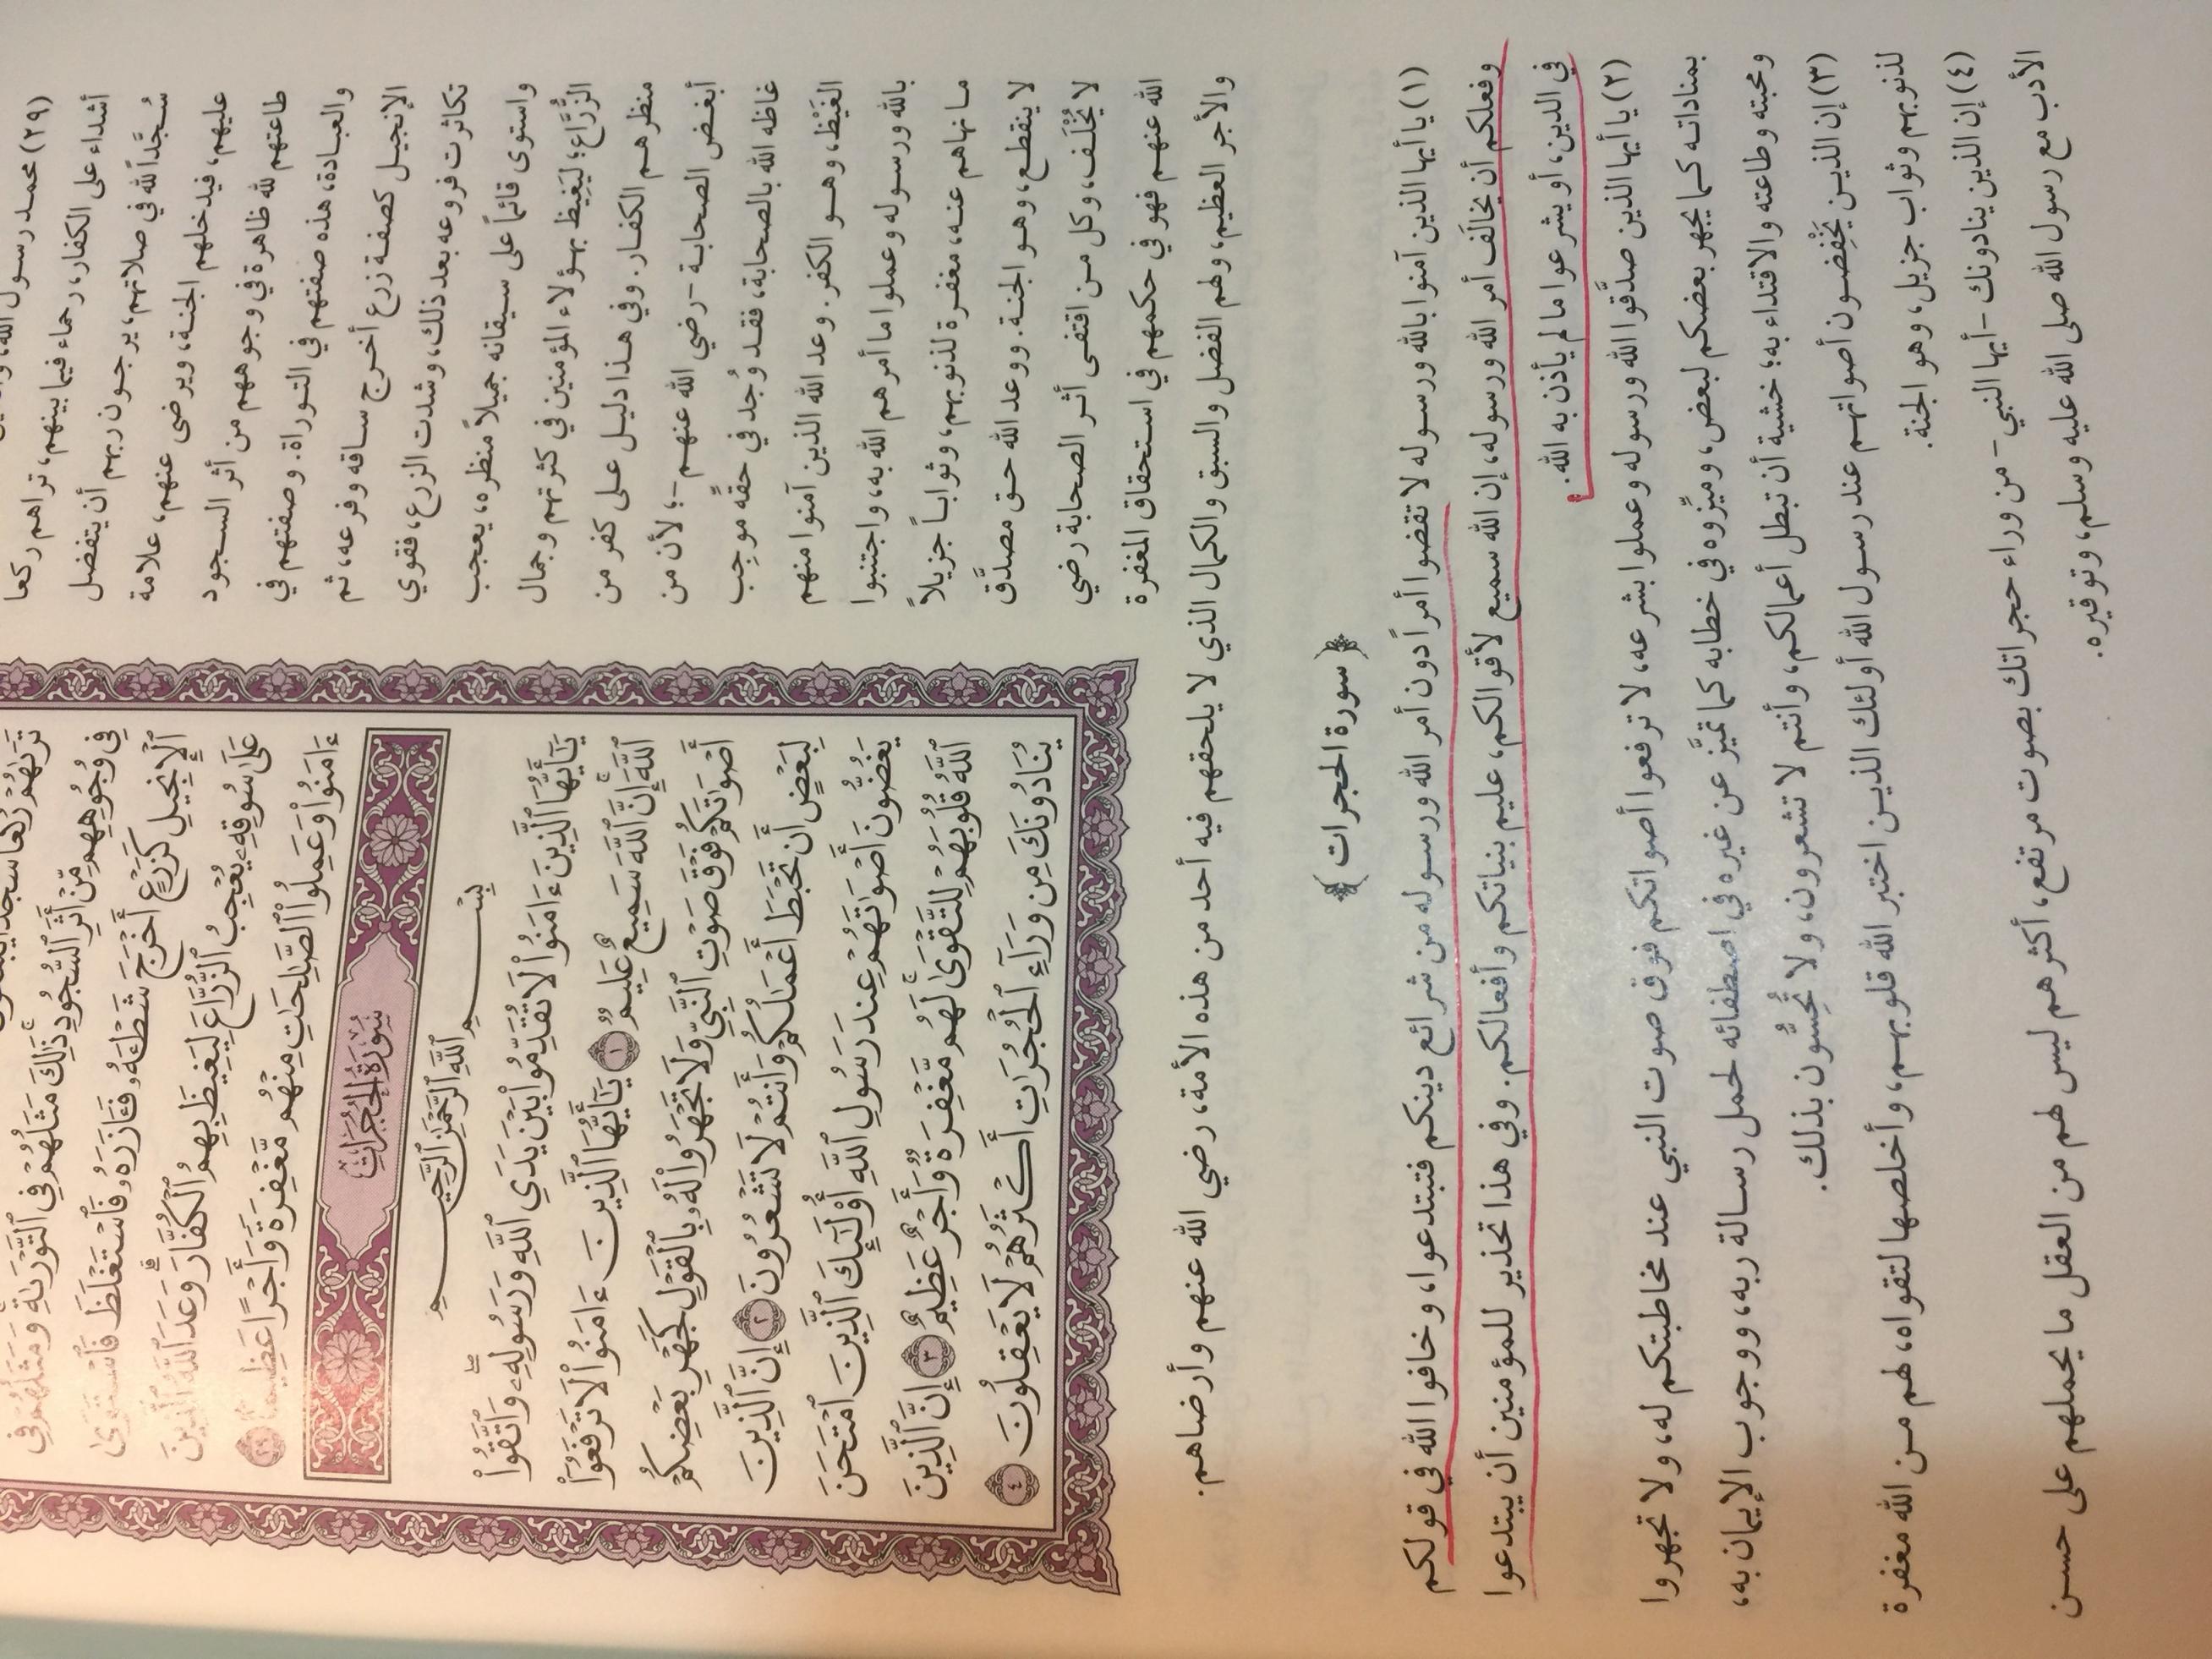 تَرَىٰهُمْ رُكَّعًا سُجَّدًا
فِي وُجُوهِهِم مِّنْ أَثَرِ ٱلسُّجُودِ ذَٰلِكَ مَثَلُهُمْ فِي ٱلتَّوْرَىٰةِ وَمَثَلُهُمْ فِي
ٱلْإِنجِيلِ كَزَرْعٍ أَخْرَجَ شَطْـَٔهُۥ فَـَٔازَرَهُۥ فَٱسْتَغْلَظَ فَٱسْتَوَىٰ
عَلَىٰ سُوقِهِۦ يُعْجِبُ ٱلزُّرَّاعَ لِيَغِيظَ بِهِمُ ٱلْكُفَّارَ وَعَدَ ٱللَّهُ ٱلَّذِينَ
ءَامَنُوا۟ وَعَمِلُوا۟ ٱلصَّٰلِحَٰتِ مِنْهُم مَّغْفِرَةً وَأَجْرًا عَظِيمًۢا ٢٩
سُورَةُ الْحُجُرَاتِ
بِسْمِ ٱللَّهِ ٱلرَّحْمَٰنِ ٱلرَّحِيمِ
يَٰٓأَيُّهَا ٱلَّذِينَ ءَامَنُوا۟ لَا تُقَدِّمُوا۟ بَيْنَ يَدَيِ ٱللَّهِ وَرَسُولِهِۦ وَٱتَّقُوا۟
ٱللَّهَ إِنَّ ٱللَّهَ سَمِيعٌ عَلِيمٌ ١ يَٰٓأَيُّهَا ٱلَّذِينَ ءَامَنُوا۟ لَا تَرْفَعُوٓا۟
أَصْوَٰتَكُمْ فَوْقَ صَوْتِ ٱلنَّبِيِّ وَلَا تَجْهَرُوا۟ لَهُۥ بِٱلْقَوْلِ كَجَهْرِ بَعْضِكُمْ
لِبَعْضٍ أَن تَحْبَطَ أَعْمَٰلُكُمْ وَأَنتُمْ لَا تَشْعُرُونَ ٢ إِنَّ ٱلَّذِينَ
يَغُضُّونَ أَصْوَٰتَهُمْ عِندَ رَسُولِ ٱللَّهِ أُو۟لَٰٓئِكَ ٱلَّذِينَ ٱمْتَحَنَ
ٱللَّهُ قُلُوبَهُمْ لِلتَّقْوَىٰ لَهُم مَّغْفِرَةٌ وَأَجْرٌ عَظِيمٌ ٣ إِنَّ ٱلَّذِينَ
يُنَادُونَكَ مِن وَرَآءِ ٱلْحُجُرَٰتِ أَكْثَرُهُمْ لَا يَعْقِلُونَ ٤
(٢٩) محمد رسول الله،
أشداء على الكفار، رحماء فيما بينهم، تراهم ركعا
سُجَّداً لله في صلاتهم، يرجون ربهم أن يتفضل
عليهم، فيدخلهم الجنة، ويرضى عنهم، علامة
طاعتهم لله ظاهرة في وجوههم من أثر السجود
والعبادة، هذه صفتهم في التوراة. وصفتهم في
الإنجيل كصفة زرع أخرج ساقه وفرعه، ثم
تكاثرت فروعه بعد ذلك، وشدت الزرع، فقوي
واستوى قائماً على سيقانه جميلاً منظره، يعجب
الزُّرَّاع؛ ليَغِيظ بهؤلاء المؤمنين في كثرتهم وجمال
منظرهم الكفار. وفي هذا دليل على كفر من
أبغض الصحابة -رضي الله عنهم-؛ لأن من
غاظه الله بالصحابة، فقد وُجد في حقه موجِب
الغَيْظ، وهو الكفر. وعد الله الذين آمنوا منهم
بالله ورسوله وعملوا ما أمرهم الله به، واجتنبوا
ما نهاهم عنه، مغفرة لذنوبهم، وثواباً جزيلاً
لا ينقطع، وهو الجنة. ووعد الله حق مصدَّق
لا يُخْلَف، وكل من اقتفى أثر الصحابة رضي
الله عنهم فهو في حكمهم في استحقاق المغفرة
والأجر العظيم، ولهم الفضل والسبق والكمال الذي لا يلحقهم فيه أحد من هذه الأمة، رضي الله عنهم وأرضاهم.
﴿ سورة الحجرات ﴾
(١) يا أيها الذين آمنوا بالله ورسوله لا تقضوا أمراً دون أمر الله ورسوله من شرائع دينكم فتبتدعوا، وخافوا الله في قولكم
وفعلكم أن يخالَف أمر الله ورسوله، إن الله سميع لأقوالكم، عليم بنياتكم وأفعالكم. وفي هذا تحذير للمؤمنين أن يبتدعوا
في الدين، أو يشرعوا ما لم يأذن به الله.
(٢) يا أيها الذين صدَّقوا الله ورسوله وعملوا بشرعه، لا ترفعوا أصواتكم فوق صوت النبي عند مخاطبتكم له، ولا تجهروا
بمناداته كما يجهر بعضكم لبعض، وميِّزوه في خطابه كما تميَّز عن غيره في اصطفائه لحمل رسالة ربه، ووجوب الإيمان به،
ومحبته وطاعته والاقتداء به؛ خشية أن تبطل أعمالكم، وأنتم لا تشعرون، ولا تُحِسُّون بذلك.
(٣) إن الذين يَخْفِضون أصواتهم عند رسول الله أولئك الذين اختبر الله قلوبهم، وأخلصها لتقواه، لهم من الله مغفرة
لذنوبهم وثواب جزيل، وهو الجنة.
(٤) إن الذين ينادونك -أيها النبي- من وراء حجراتك بصوت مرتفع، أكثرهم ليس لهم من العقل ما يحملهم على حسن
الأدب مع رسول الله صلى الله عليه وسلم، وتوقيره.